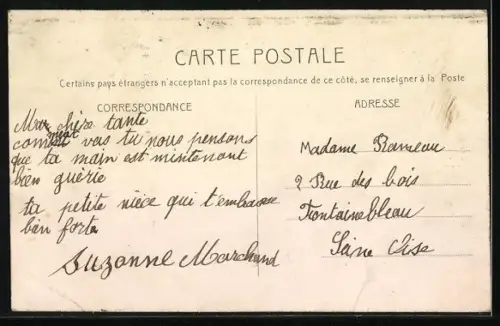 CARTE POSTALE
Certains pays étrangers n'acceptant pas la correspondance de ce côté, se renseigner à la Poste
CORRESPONDANCE
Ma chère tante
comment vas tu nous pensons
que ta main est mintenant
bien guérie
ta petite nièce qui t'embrasse
bien fort
Suzanne Marchand
ADRESSE
Madame Rameau
2 Rue des bois
Fontainebleau
Seine Oise